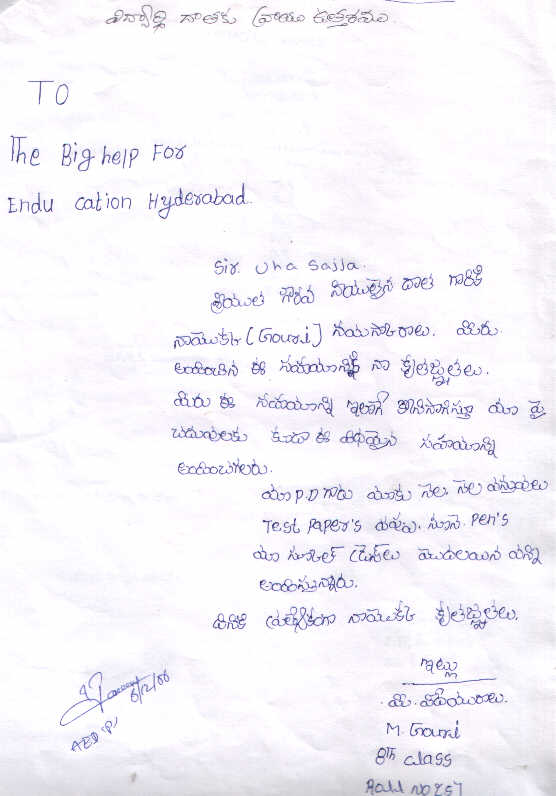 విద్యార్థి దాతకు వ్రాయు ఉత్తరము.
TO
The Big help For
Endu cation Hyderabad.
Sir. Uha Sajja.
శ్రీయుత గౌరవ నియులైన దాత గారికి
నాయొక్క (Gouri) నమస్కారాలు. మీరు
అందించిన ఈ సహయానికి నా కృతజ్ఞతలు.
మీరు ఈ సహయాన్ని ఇలాగే కొనసాగిస్తూ మా పై
చదువులకు కూడా ఈ విధమైన సహాయాన్ని
అందించగలరు.
మా P.D గారు మాకు నెల, నెల వస్తువులు
Test Paper's పప్పు, నూనె, Pen's
మా స్కూల్ డ్రెస్‌లు మొదలయిన వన్ని
అందిస్తున్నారు.
దీనికి ప్రత్యేకంగా నాయొక్క కృతజ్ఞతలు.
ఇట్లు
మీ. విధేయురాలు.
M. Gouri
8th class
Roll No 257
6/2/08
AED 'P'